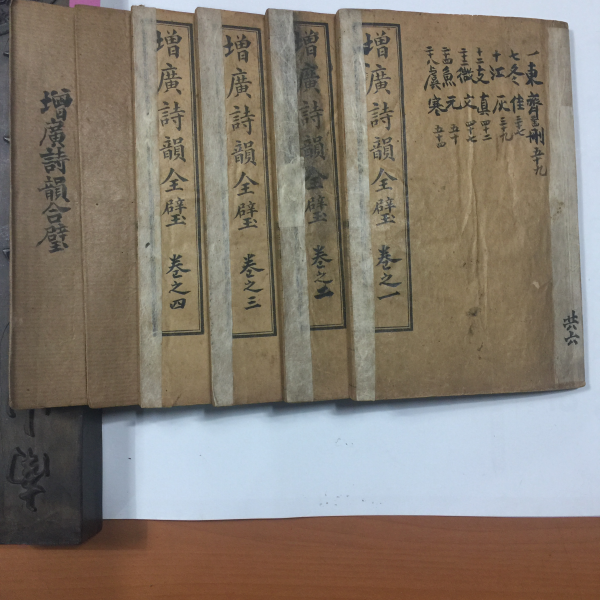 共六
一東 齊 刪 五十九
七冬 佳 三十七
十江 灰 三十九
十二支 真 四十二
微 文 四十七
魚 元 五十
虞 寒 五十四
增廣詩韻全璧 卷之一
增廣詩韻全璧 卷之二
增廣詩韻全璧 卷之三
增廣詩韻全璧 卷之四
增廣詩韻合璧